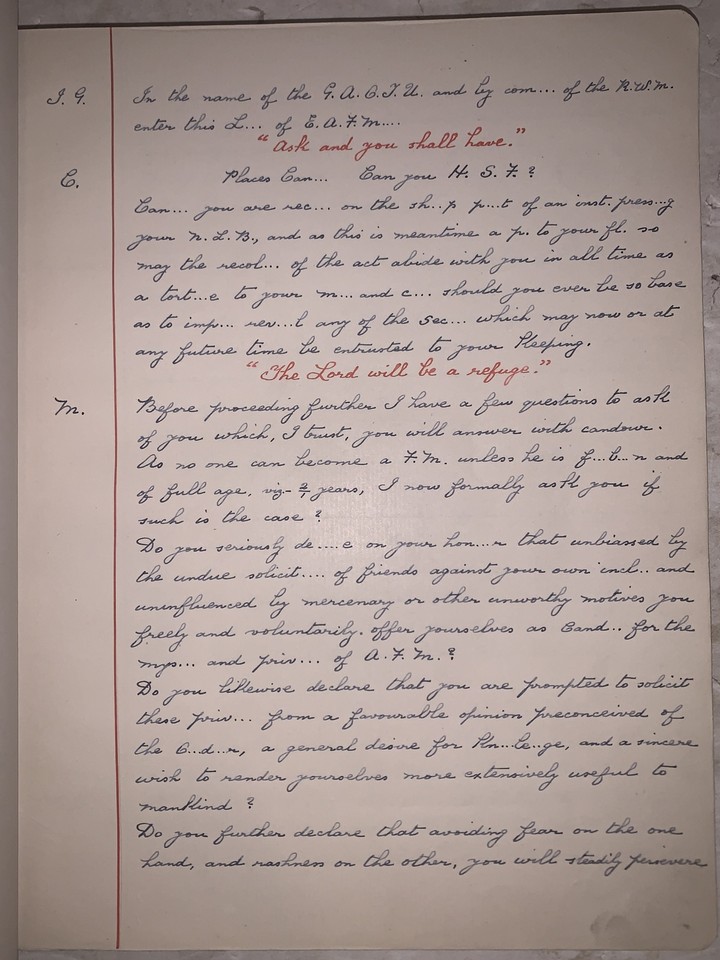 I. G. In the name of the G. A. O. T. U. and by com... of the R. W. M.
enter this L... of E. A. F. M....
"Ask and you shall have."
C. Places Can... Can you H. S. F. ?
Can... you are rec... on the sh..p p...t of an inst. press...g
your n. L. B., and as this is meantime a p. to your fl. so
may the recol... of the act abide with you in all time as
a tort...e to your m... and c... should you ever be so base
as to imp... rev...l any of the Sec... which may now or at
any future time be entrusted to your Keeping.
"The Lord will be a refuge."
M. Before proceeding further I have a few questions to ask
of you which, I trust, you will answer with candour.
As no one can become a F. M. unless he is f...b...n and
of full age, viz:- years, I now formally ask you if
such is the case ?
Do you seriously de....e on your hon...r that unbiassed by
the undue solicit.... of friends against your own incl.. and
uninfluenced by mercenary or other unworthy motives you
freely and voluntarily. offer yourselves as Cand... for the
mys... and priv... of A. F. M. ?
Do you likewise declare that you are prompted to solicit
these priv... from a favourable opinion preconceived of
the O..d..r, a general desire for Kn...le..ge, and a sincere
wish to render yourselves more extensively useful to
mankind ?
Do you further declare that avoiding fear on the one
hand, and rashness on the other, you will steadily persevere